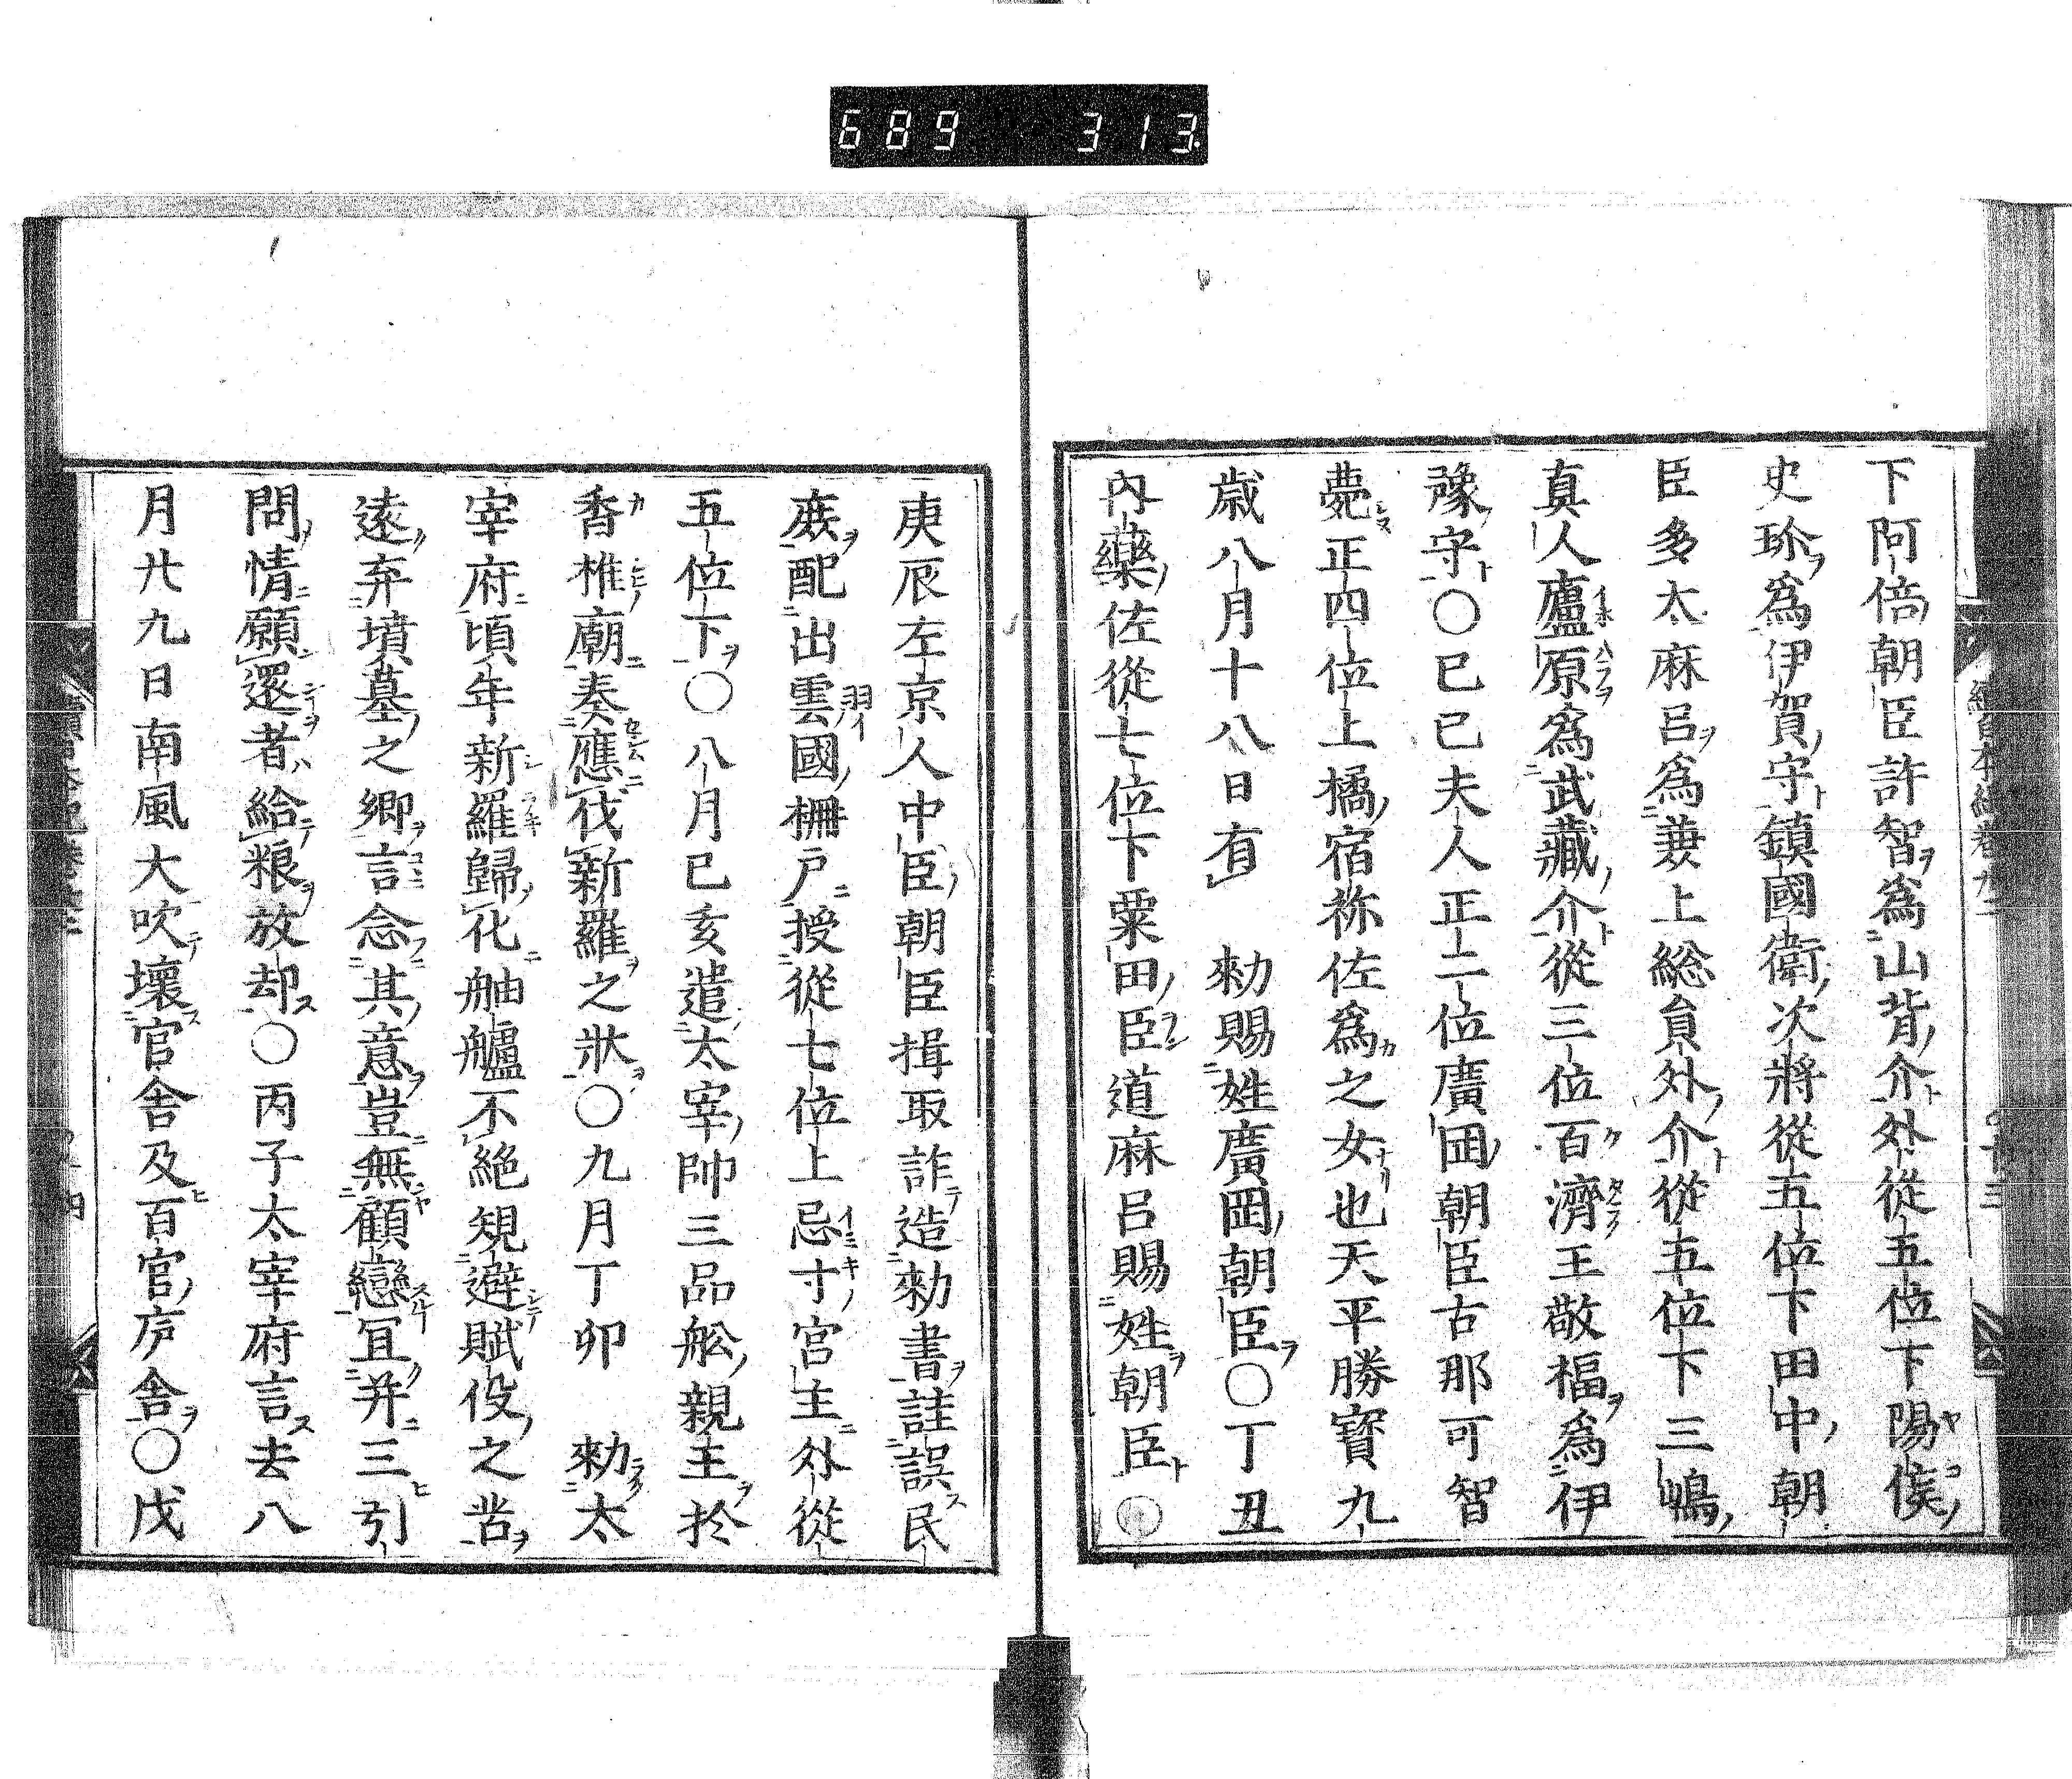 689 313
下阿倍朝臣許智爲山背介外從五位下陽侯
史玪爲伊賀守鎮國衛次將從五位下田中朝
臣多太麻呂爲兼上総員外介從五位下三嶋
真人廬原爲武藏介從三位百濟王敬福爲伊
豫守〇已已夫人正二位廣岡朝臣古那可智
薨正四位上橘宿祢佐爲之女也天平勝寳九
歳八月十八日有　勑賜姓廣岡朝臣〇丁丑
內藥佐從七位下粟田臣道麻呂賜姓朝臣〇
庚辰左京人中臣朝臣揖取詐造勑書詿誤民
庶配出雲國柵戸授從七位上忌寸宮主外從
五位下〇八月已亥遣太宰帥三品舩親王於
香椎廟奏應伐新羅之狀〇九月丁卯　勑太
宰府頃年新羅歸化舳艫不絶䂓避賦役之苦
遠弃墳墓之鄉言念其意豈無顧戀冝并三引
問情願還者給粮放却〇丙子太宰府言去八
月廿九日南風大吹壞官舎及百官庐舎〇戊